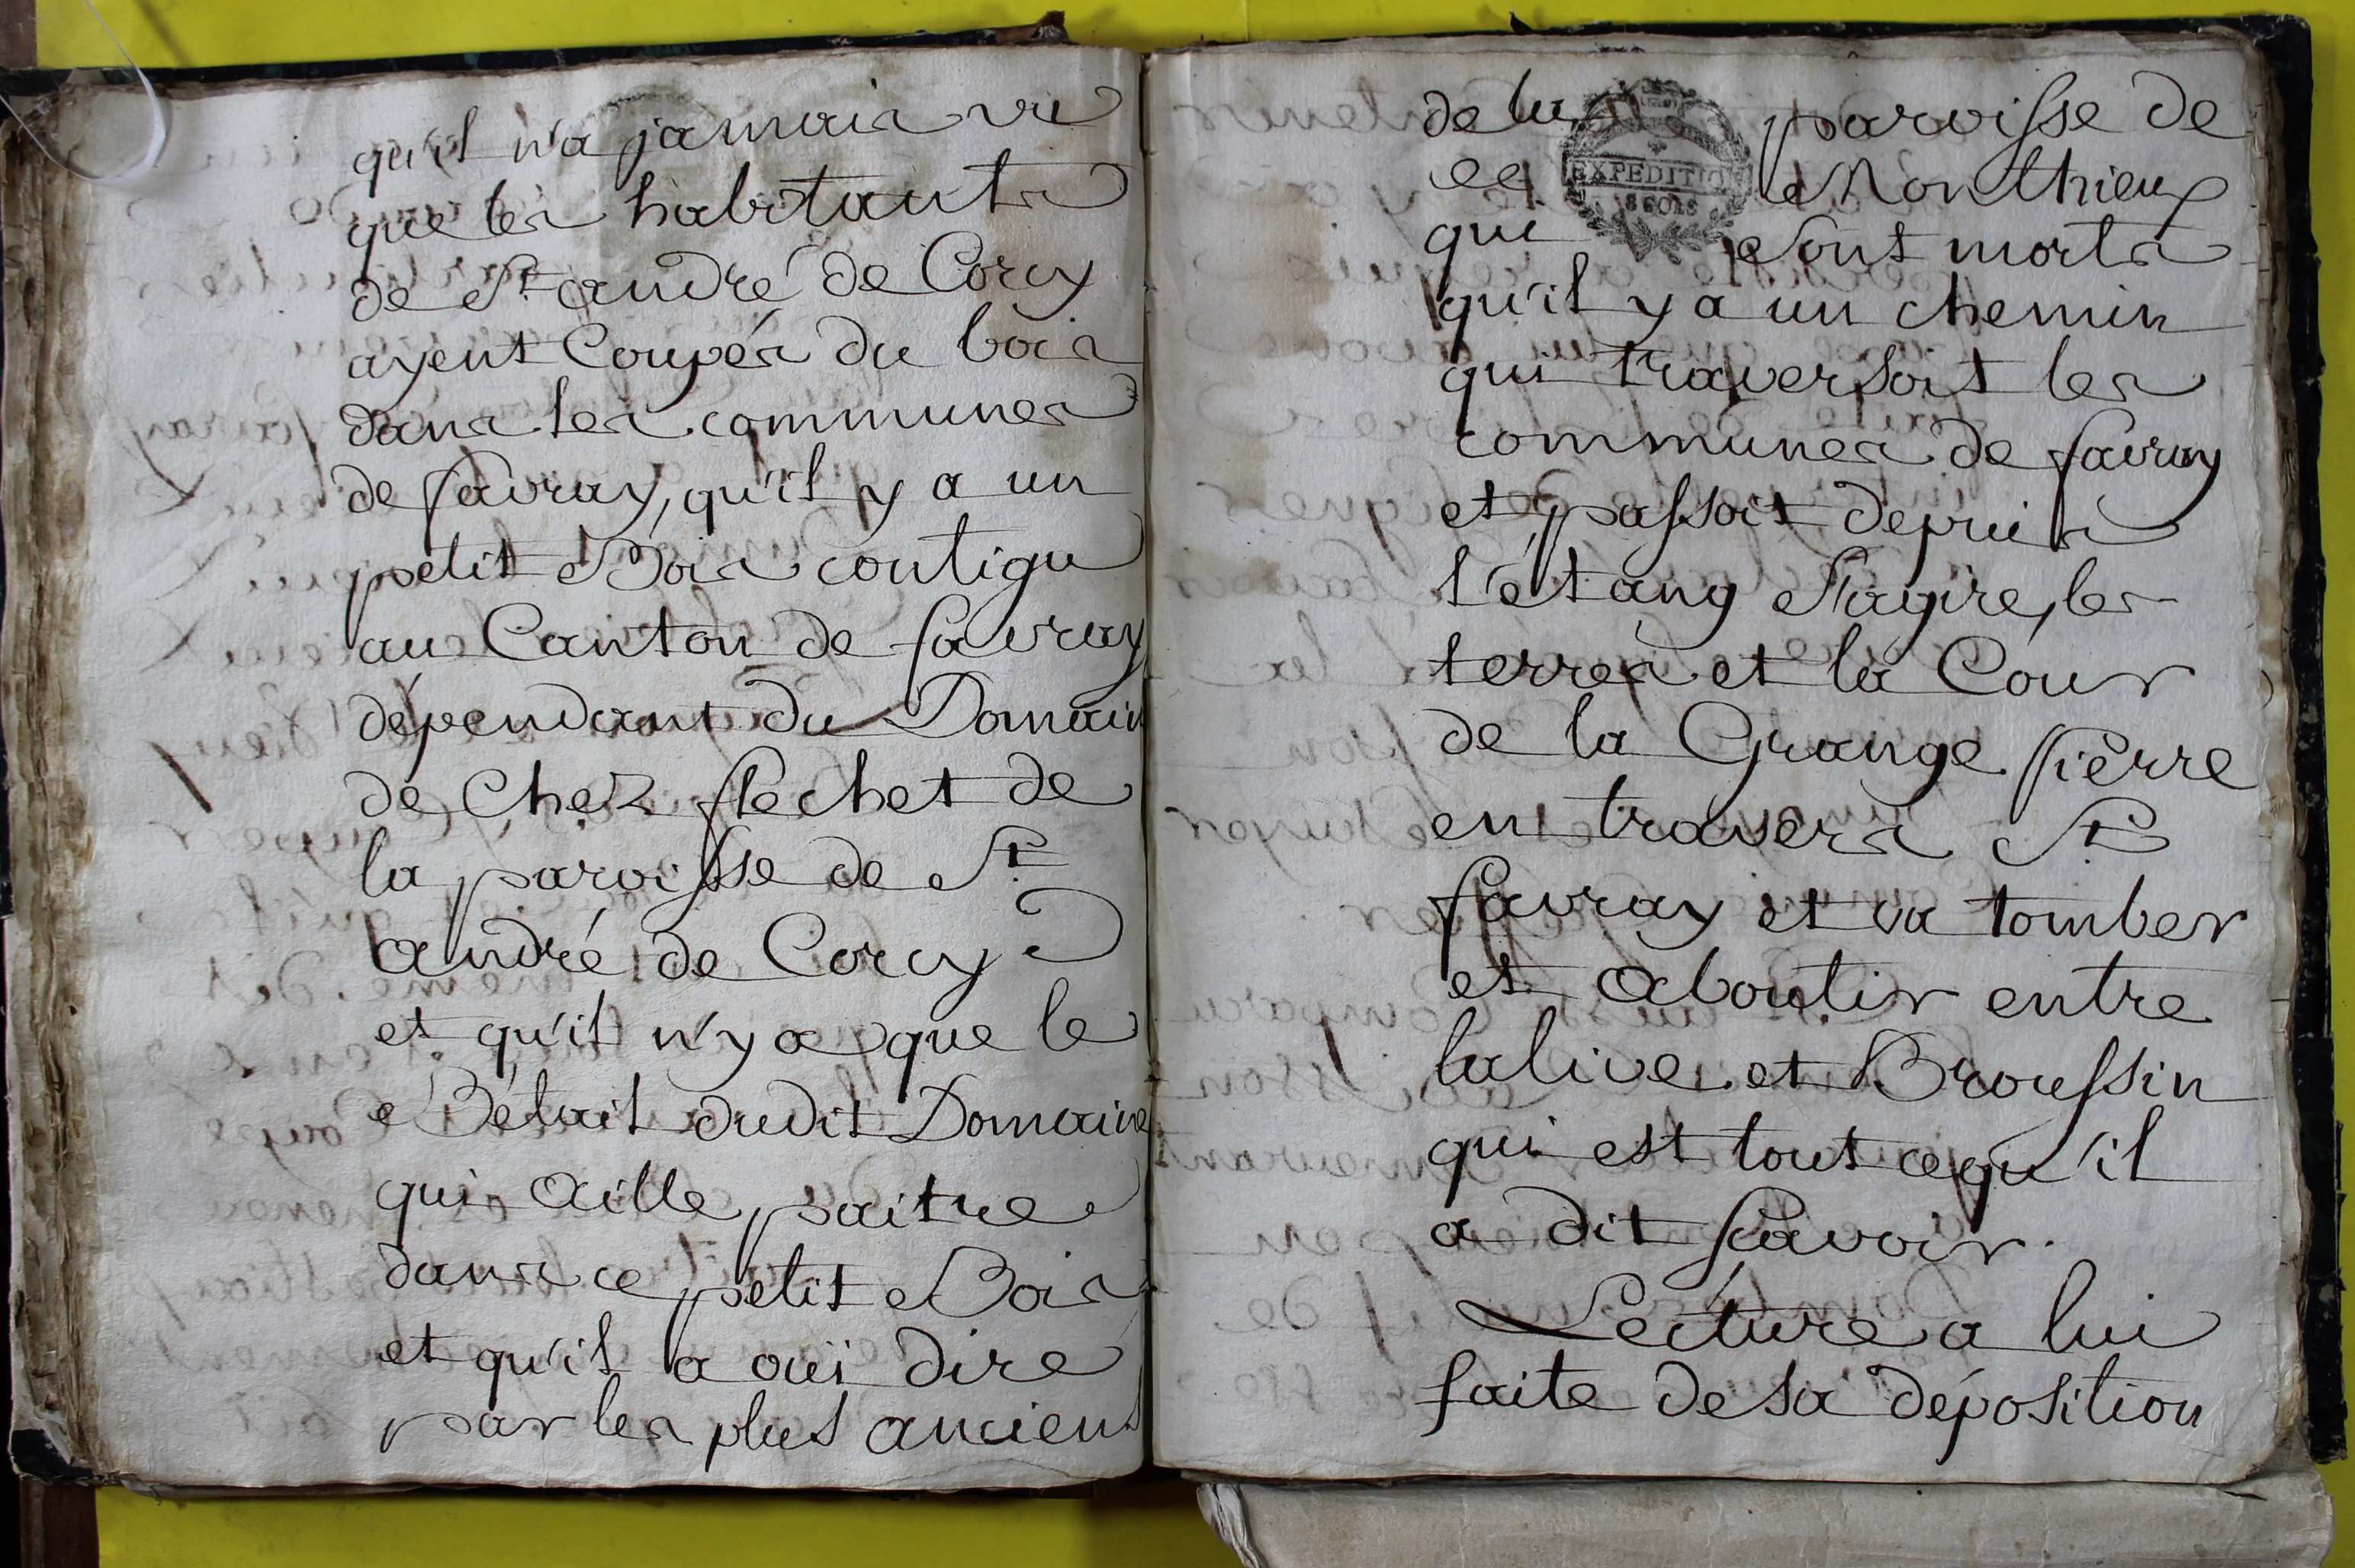 qu'il n'a jamais vu
que les habitants
de St. andré de Corcy
ayent Coupés du bois
dans les communes
de favray, qu'il y a un
petit Bois contigu
au Canton de favray
dépendant du Domain
de Chez flechet de
la paroisse de St.
andré de Corcy
et qu'il n'y a que le
Bétail dudit Domaine
qui aille paitre
dans ce petit Bois
et qu'il a ouï dire
par les plus anciens
de la paroisse de
Monthieux
EXPEDITION
8 SOLS
que sont morts
qu'il y a un chemin
qui traversoit les
communes de favray
et passoit depuis
l'étang les
terres et la Cour
de la Grange Pierre
en travers St.
favray et va tomber
et aboutir entre
lalive et Broussin
qui est tout ce qu'il
a dit savoir.
Lecture a lui
faite de sa déposition